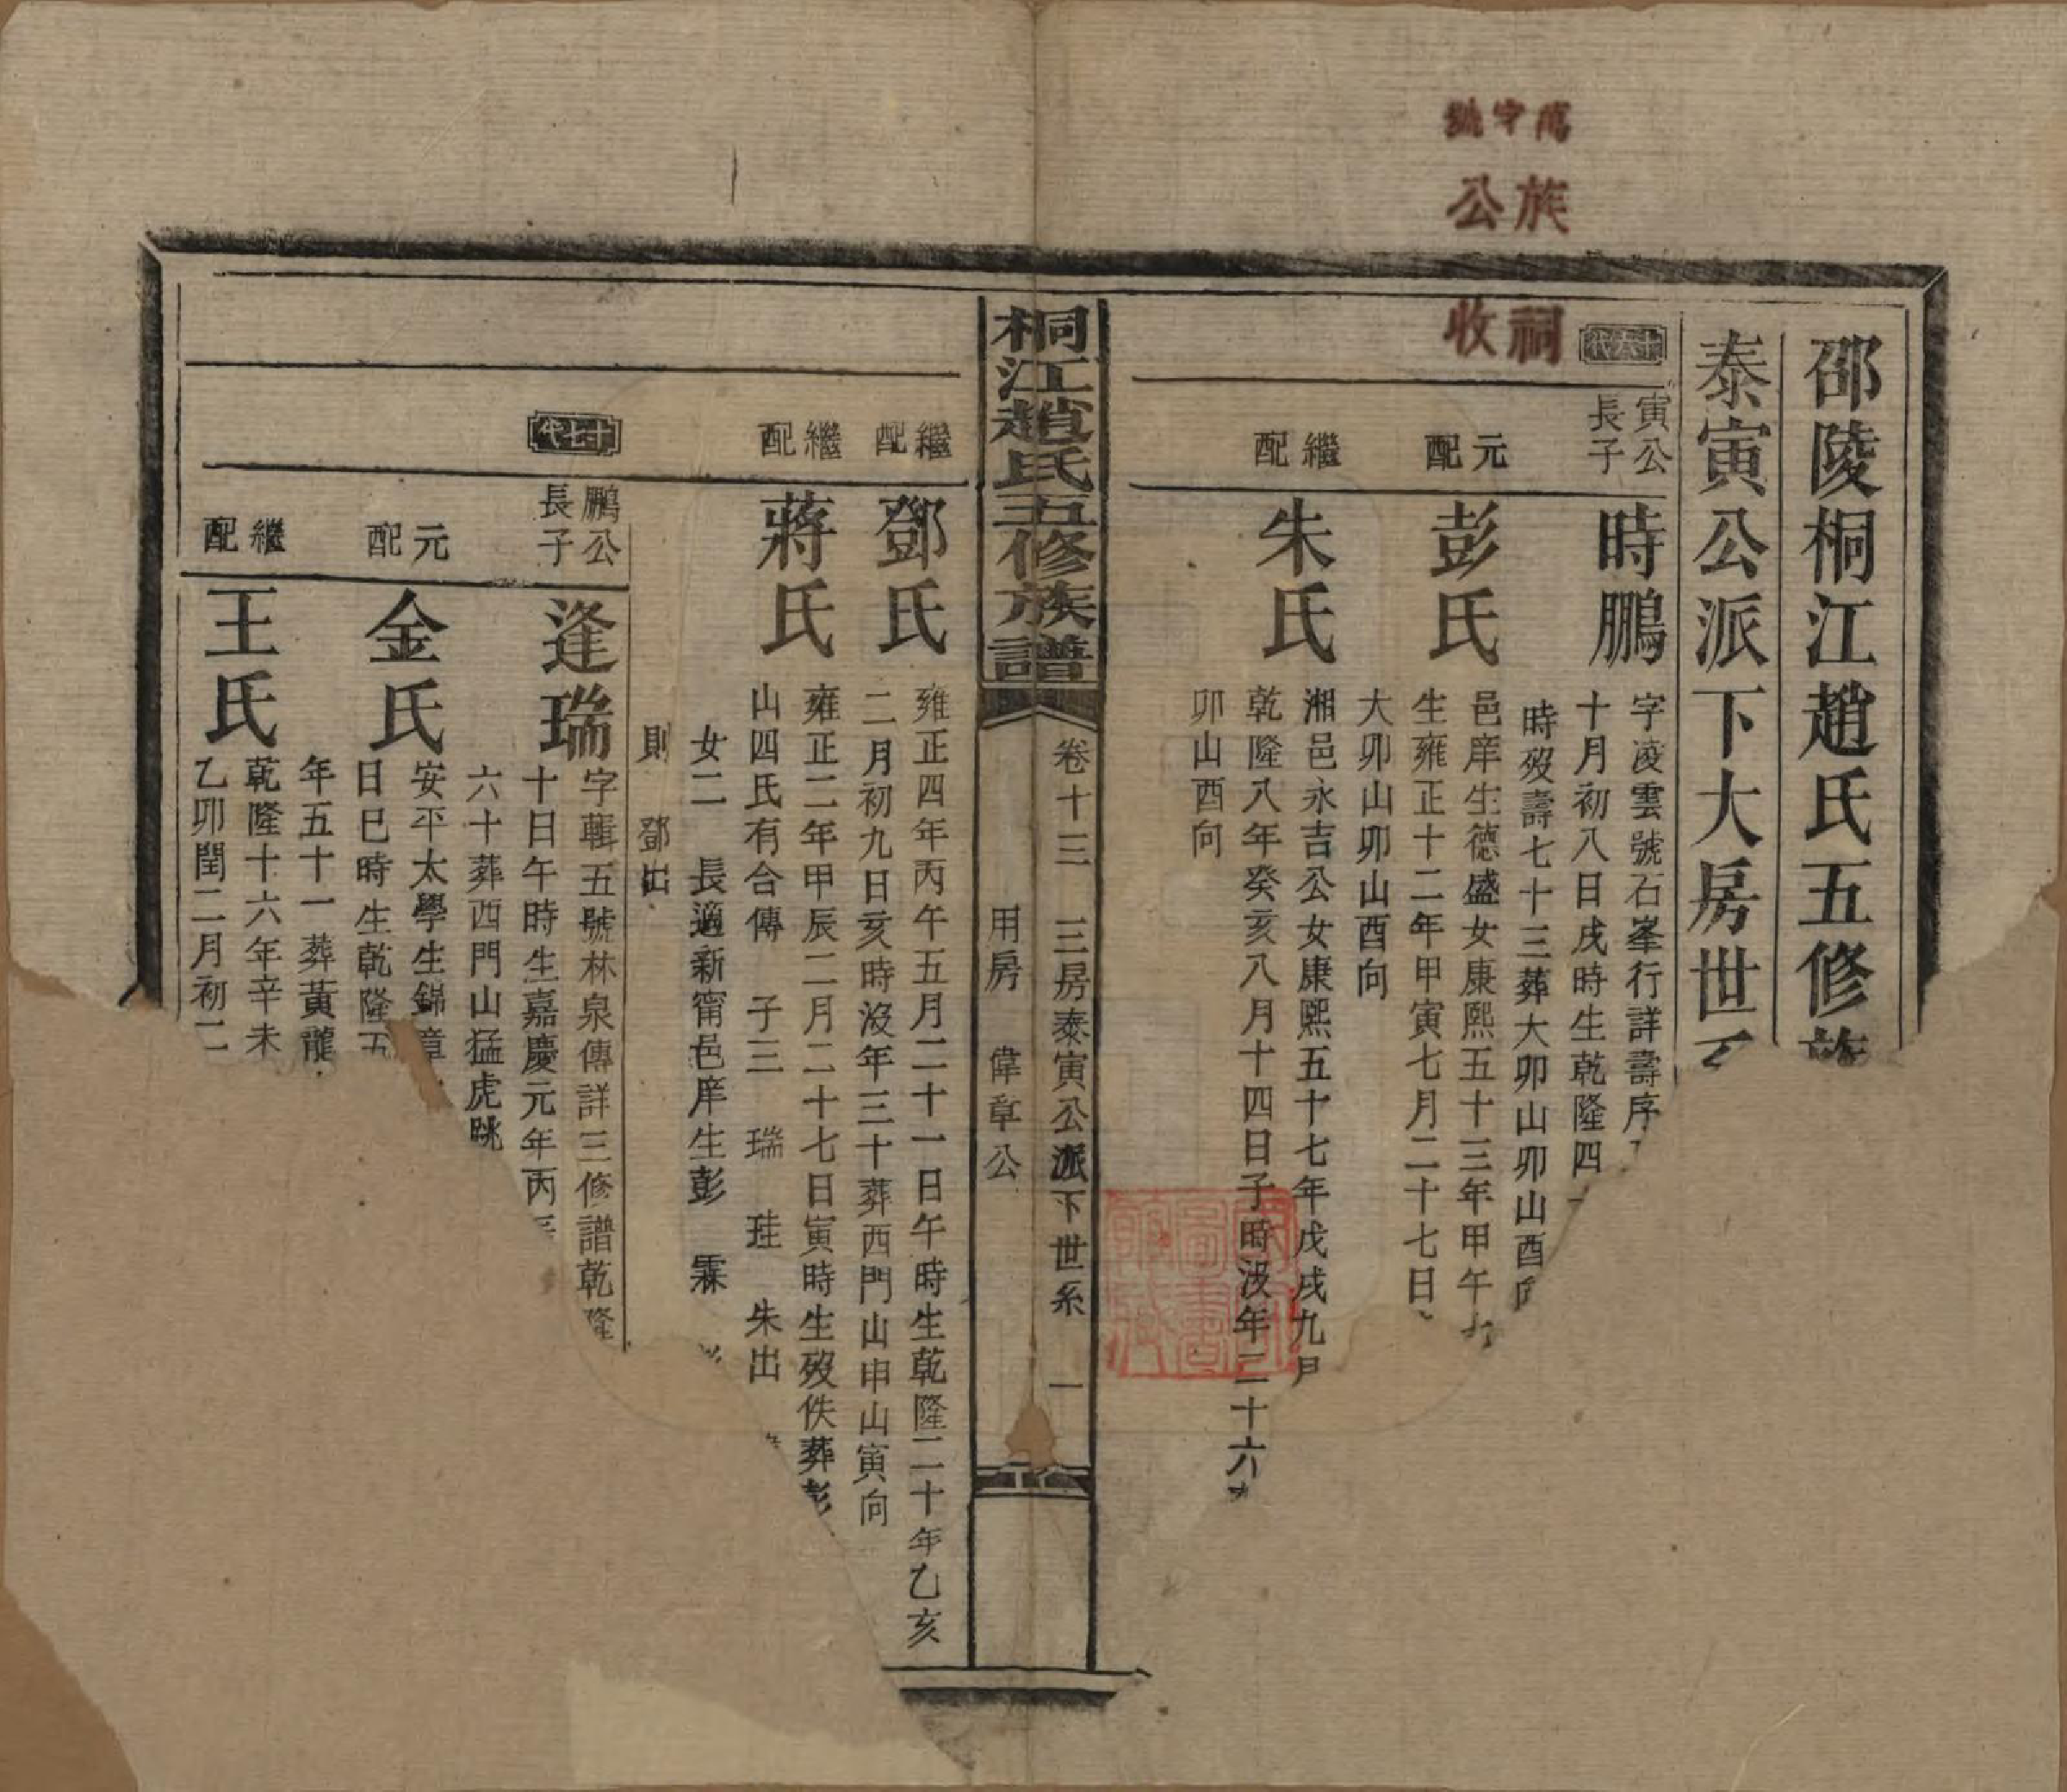 萬字號
族公
祠收
邵陵桐江趙氏五修族
泰寅公派下大房世系
十六代
寅公長子
時鵬
字凌雲號石峯行詳壽序
十月初八日戌時生乾隆四
時歿壽七十三葬大卯山卯山酉向
元配
彭氏
邑庠生德盛女康熙五十三年甲午
生雍正十二年甲寅七月二十七日
大卯山卯山酉向
繼配
朱氏
湘邑永吉公女康熙五十七年戊戌九月
乾隆八年癸亥八月十四日子時沒年二十六
卯山酉向
桐江趙氏五修族譜
卷十三 三房泰寅公派下世系 一
用房 偉章公
繼配
鄧氏
雍正四年丙午五月二十一日午時生乾隆二十年乙亥
二月初九日亥時沒年三十葬西門山申山寅向
繼配
蔣氏
雍正二年甲辰二月二十七日寅時生歿佚葬彭
山四氏有合傳 子三 瑞 珪 朱出
女二 長適新甯邑庠生彭 霖
則 鄧出
十七代
鵬公長子
逢瑞
字輯五號林泉傳詳三修譜乾隆
十日午時生嘉慶元年丙辰
六十葬西門山猛虎跳
元配
金氏
安平太學生錦章
日巳時生乾隆五
年五十一葬黃龍
繼配
王氏
乾隆十六年辛未
乙卯閏二月初二